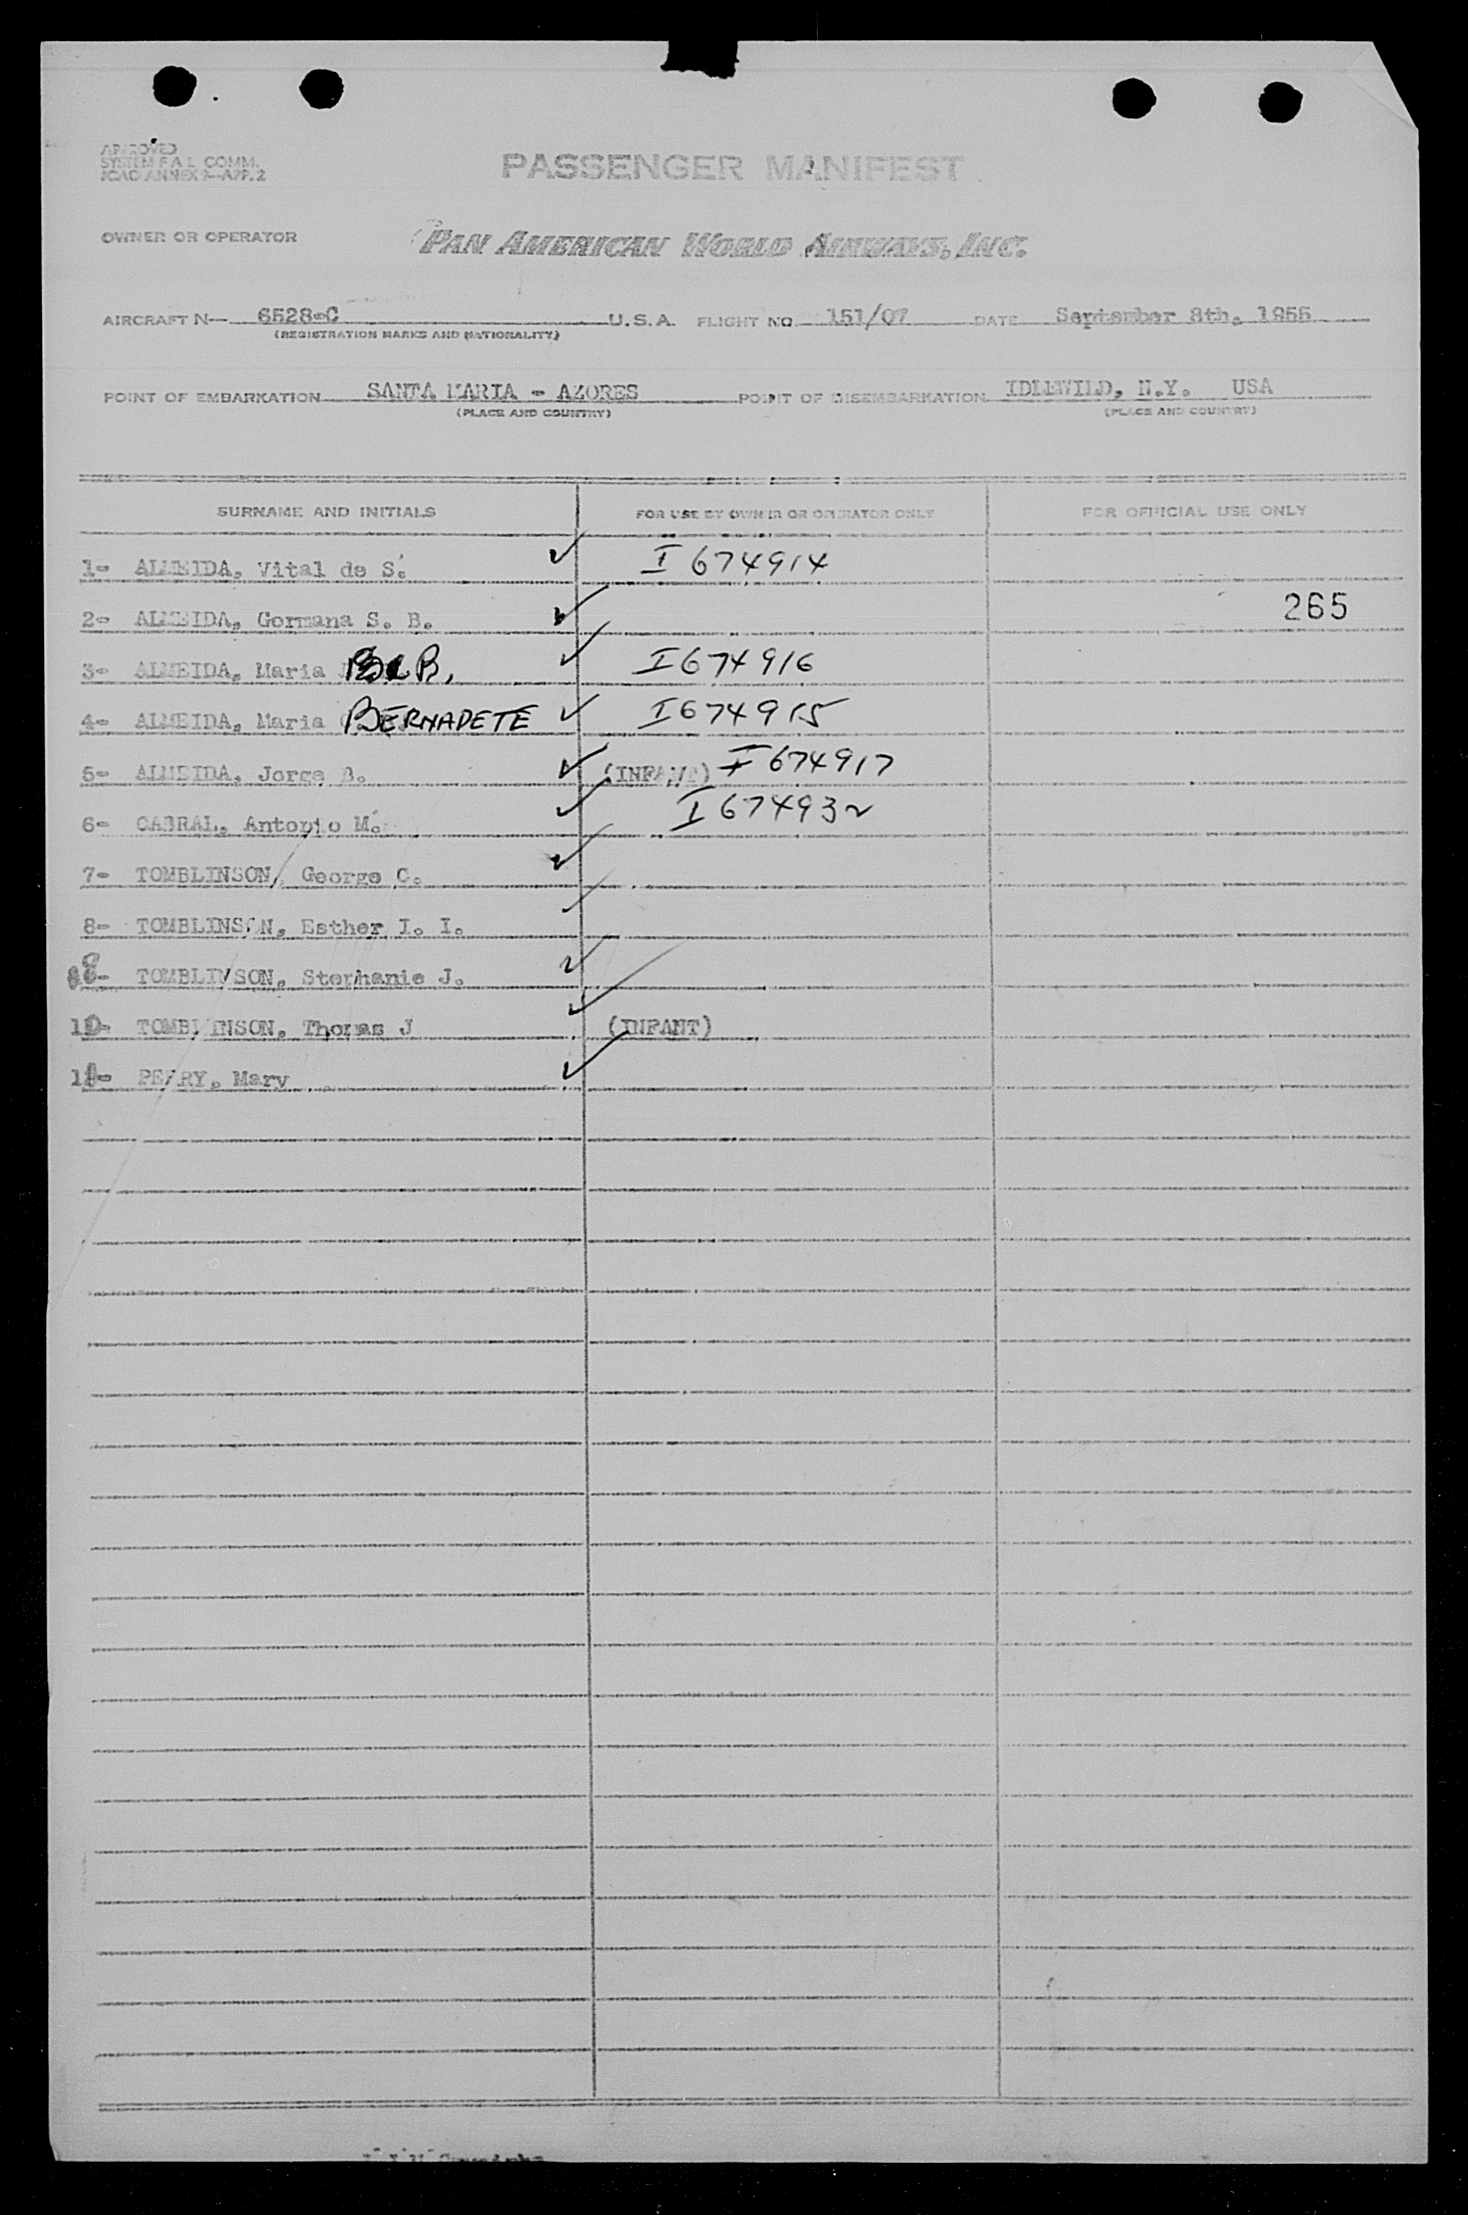 APPROVED
SYSTEM F A L COMM.
ICAO ANNEX 9-APP. 2
PASSENGER MANIFEST
OWNER OR OPERATOR PAN AMERICAN WORLD AIRWAYS, INC.
AIRCRAFT N- 6528-C U.S.A. FLIGHT NO 151/07 DATE September 8th, 1955
(REGISTRATION MARKS AND NATIONALITY)
POINT OF EMBARKATION SANTA MARIA - AZORES POINT OF DISEMBARKATION IDLEWILD, N.Y. USA
(PLACE AND COUNTRY) (PLACE AND COUNTRY)
SURNAME AND INITIALS FOR USE BY OWNER OR OPERATOR ONLY FOR OFFICIAL USE ONLY
1- ALMEIDA, Vital de S. ✓ I 674914
2- ALMEIDA, Germana S. B. ✓ 265
3- ALMEIDA, Maria B. ✓ I674916
4- ALMEIDA, Maria BERNADETE ✓ I674915
5- ALMEIDA, Jorge B. ✓ (INFANT) I 674917
6- CABRAL, Antonio M. ✓ I 674932
7- TOMBLINSON, George C. ✓
8- TOMBLINSON, Esther I. I. ✓
9- TOMBLINSON, Stephanie J. ✓
10- TOMBLINSON, Thomas J ✓ (INFANT)
11- PERRY, Mary ✓